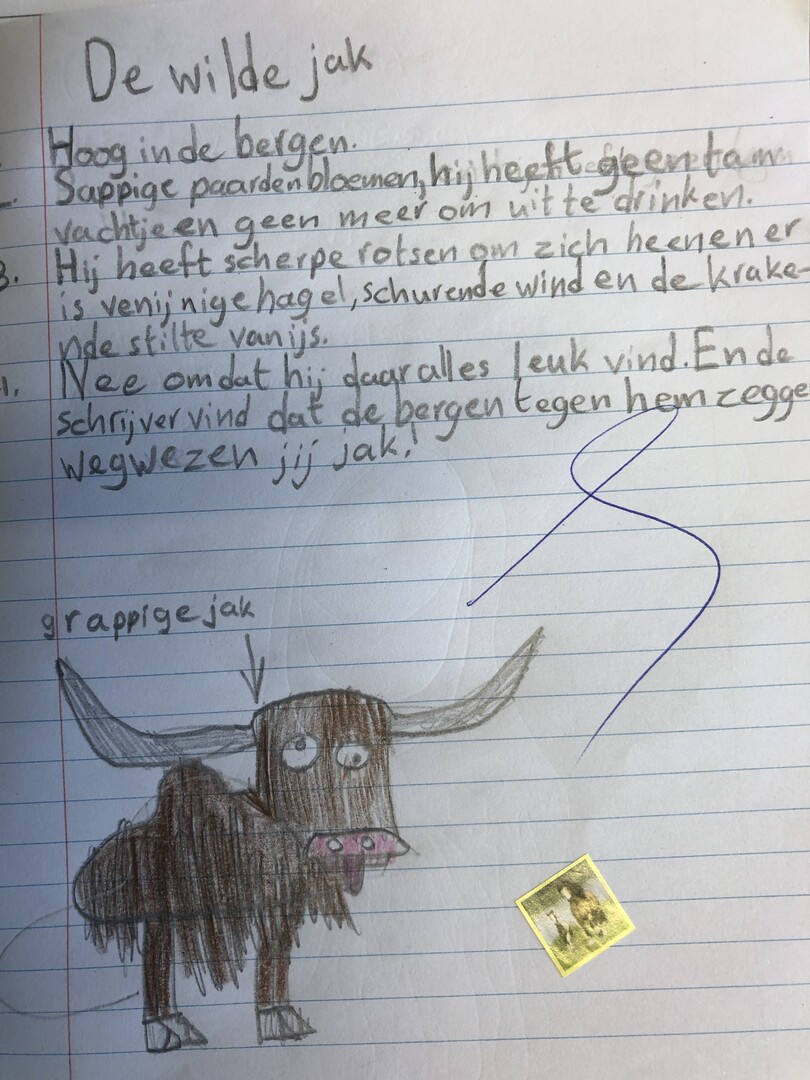 De wilde jak
Hoog in de bergen.
Sappige paardenbloemen, hij heeft geen tam
vachtje en geen meer om uit te drinken.
3. Hij heeft scherpe rotsen om zich heen en er
is venijnige hagel, schurende wind en de krake-
nde stilte van ijs.
4. Nee omdat hij daar alles leuk vind. En de
schrijver vind dat de bergen tegen hem zegge
wegwezen jij jak!
grappige jak